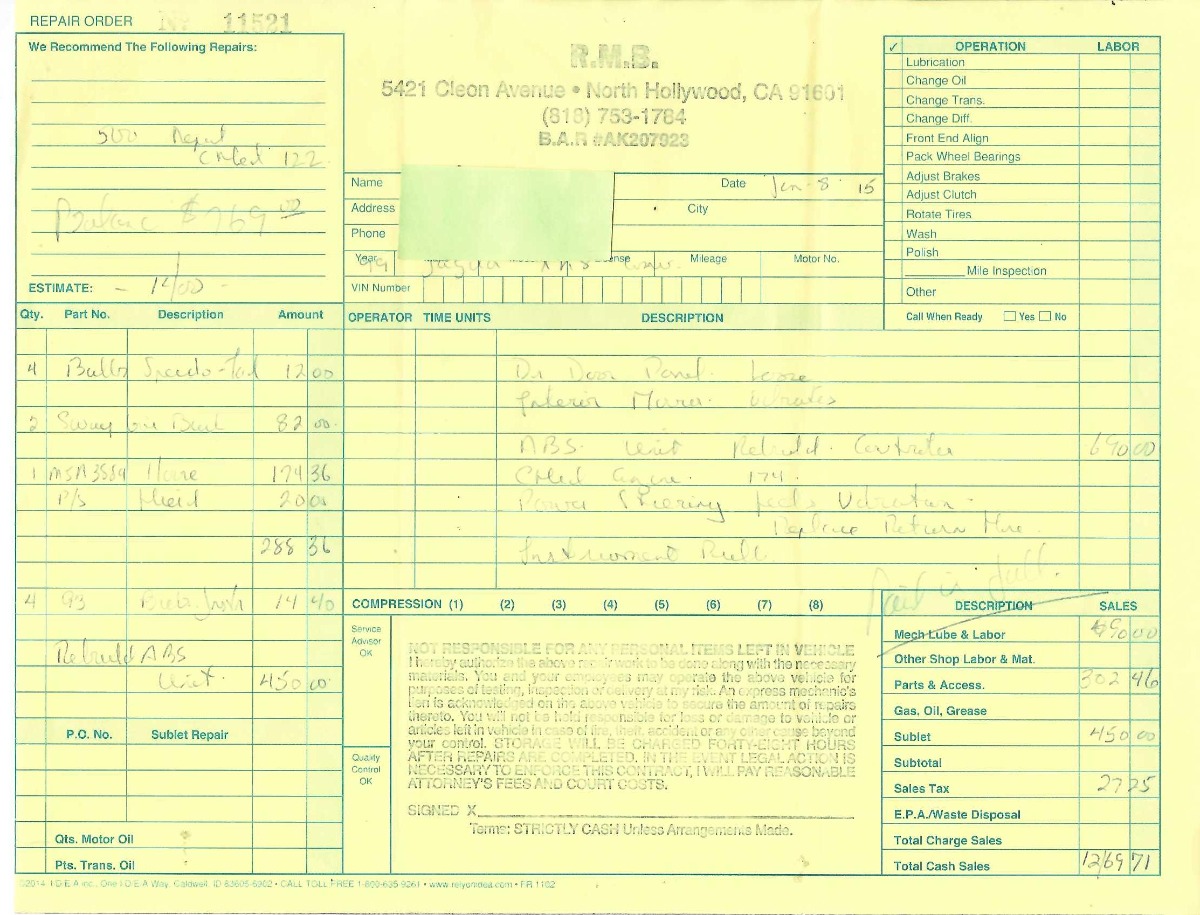 REPAIR ORDER Nº 11521
We Recommend The Following Repairs:
500
122
Balance $769 00
ESTIMATE: - 1400 -
R.M.B.
5421 Cleon Avenue • North Hollywood, CA 91601
(818) 753-1784
B.A.R #AK207923
Name
Date Jan 8 15
Address
City
Phone
Year 99 Jaguar
Mileage
Motor No.
VIN Number
✓ OPERATION LABOR
Lubrication
Change Oil
Change Trans.
Change Diff.
Front End Align
Pack Wheel Bearings
Adjust Brakes
Adjust Clutch
Rotate Tires
Wash
Polish
Mile Inspection
Other
Call When Ready Yes No
Qty. Part No. Description Amount
4 Bulbs 12 00
2 Sway 82 00
1 174 36
P/s 20 00
288 36
4 93 14 40
Rebuild ABS
Unit 450 00
P.O. No. Sublet Repair
Qts. Motor Oil
Pts. Trans. Oil
OPERATOR TIME UNITS DESCRIPTION
Dr Door Panel Loose
Interior Mirror Vibrates
ABS Unit Rebuild 690 00
174
Power Steering
Replace Return
Instrument
Paid in full
COMPRESSION (1) (2) (3) (4) (5) (6) (7) (8)
Service Advisor OK
Quality Control OK
NOT RESPONSIBLE FOR ANY PERSONAL ITEMS LEFT IN VEHICLE
I hereby authorize the above repair work to be done along with the necessary
materials. You and your employees may operate the above vehicle for
purposes of testing, inspection or delivery at my risk. An express mechanic's
lien is acknowledged on the above vehicle to secure the amount of repairs
thereto. You will not be held responsible for loss or damage to vehicle or
articles left in vehicle in case of fire, theft, accident or any other cause beyond
your control. STORAGE WILL BE CHARGED FORTY-EIGHT HOURS
AFTER REPAIRS ARE COMPLETED. IN THE EVENT LEGAL ACTION IS
NECESSARY TO ENFORCE THIS CONTRACT, I WILL PAY REASONABLE
ATTORNEY'S FEES AND COURT COSTS.
SIGNED X
Terms: STRICTLY CASH Unless Arrangements Made.
DESCRIPTION SALES
Mech Lube & Labor 690 00
Other Shop Labor & Mat.
Parts & Access. 302 46
Gas, Oil, Grease
Sublet 450 00
Subtotal
Sales Tax 27 25
E.P.A./Waste Disposal
Total Charge Sales
Total Cash Sales 1269 71
©2014 I·D·E·A Inc., One I·D·E·A Way, Caldwell, ID 83605-6902 • CALL TOLL FREE 1-800-635-9261 • www.relyonidea.com • FR 1162